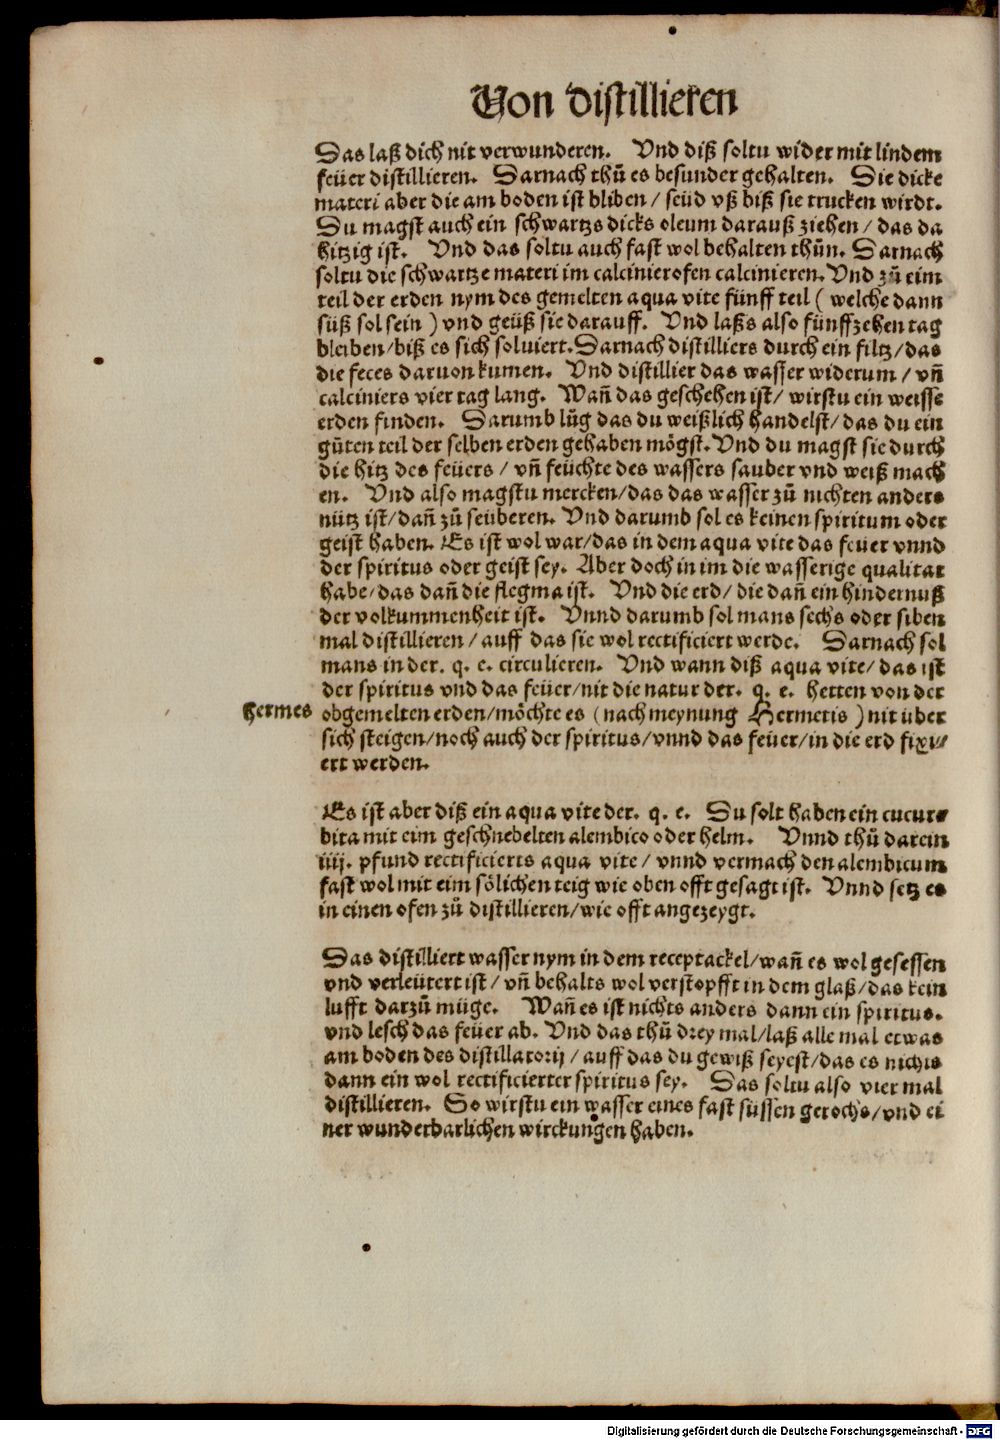 Von distillieren
Das laß dich nit verwunderen. Vnd diß soltu wider mit lindem
feüer distillieren. Darnach thů es besunder gehalten. Die dicke
materi aber die am boden ist bliben / seüd vß biß sie trucken wirdt.
Du magst auch ein schwartzs dicks oleum darauß ziehen / das da
hitzig ist. Vnd das soltu auch fast wol behalten thůn. Darnach
soltu die schwartze materi im calcinierofen calcinieren. Vnd zů eim
teil der erden nym des gemelten aqua vite fünff teil ( welche dann
süß sol sein ) vnd geüß sie darauff. Vnd laßs also fünffzehen tag
bleiben/biß es sich soluiert. Darnach distilliers durch ein filtz/das
die feces daruon kumen. Vnd distillier das wasser widerum / vñ
calciniers vier tag lang. Wañ das geschehen ist/ wirstu ein weisse
erden finden. Darumb lůg das du weißlich handelst/das du ein
gůten teil der selben erden gehaben mögst. Vnd du magst sie durch
die hitz des feüers / vñ feüchte des wassers sauber vnd weiß mach
en. Vnd also magstu mercken/das das wasser zů nichten anders
nütz ist/dañ zů seüberen. Vnd darumb sol es keinen spiritum oder
geist haben. Es ist wol war/das in dem aqua vite das feuer vnnd
der spiritus oder geist sey. Aber doch in im die wasserige qualitat
habe/das dañ die flegma ist. Vnd die erd/ die dañ ein hindernuß
der volkummenheit ist. Vnnd darumb sol mans sechs oder siben
mal distillieren / auff das sie wol rectificiert werde. Darnach sol
mans in der. q. e. circulieren. Vnd wann diß aqua vite/ das ist
der spiritus vnd das feüer/nit die natur der. q. e. hetten von der
hermes
obgemelten erden/möchte es (nach meynung Hermetis ) nit über
sich steigen/noch auch der spiritus/vnnd das feüer/in die erd fixi⸗
ert werden.
Es ist aber diß ein aqua vite der. q. e. Du solt haben ein cucur⸗
bita mit eim geschnebelten alembico oder helm. Vnnd thů darein
iiij. pfund rectificierts aqua vite/ vnnd vermach den alembicum
fast wol mit eim sölichen teig wie oben offt gesagt ist. Vnnd setz es
in einen ofen zů distillieren/wie offt angezeygt.
Das distilliert wasser nym in dem receptackel/wañ es wol gesessen
vnd verleütert ist/ vñ behalts wol verstopfft in dem glaß/das kein
lufft darzů müge. Wañ es ist nichts anders dann ein spiritus.
vnd lesch das feüer ab. Vnd das thů drey mal/laß alle mal etwas
am boden des distillatorij / auff das du gewiß seyest/das es nichts
dann ein wol rectificierter spiritus sey. Das soltu also vier mal
distillieren. So wirstu ein wasser eines fast süssen gerochs/vnd ei
ner wunderbarlichen wirckungen haben.
Digitalisierung gefördert durch die Deutsche Forschungsgemeinschaft - DFG